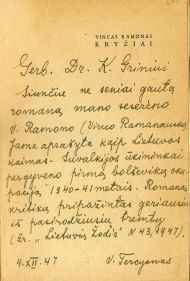 VINCAS RAMONAS
KRYŽIAI
Gerb. Dr. K. Grinini
Siunčiu ne seniai gautą
romaną mano seserėno
V. Ramono (Vinco Ramanausko)
Jame aprašyta kaip Lietuvos
kaimas - Suvalkijos ūkininkai
pergyveno pirmą bolševikų oku-
paciją 1940-41 metais. Romanas
kritikų pripažintas geriausiu
iš pasirodžiusių tremty
(žr. „Lietuvių Žodis" N 43, 1947).
4.XII.47 V. Tercijonas